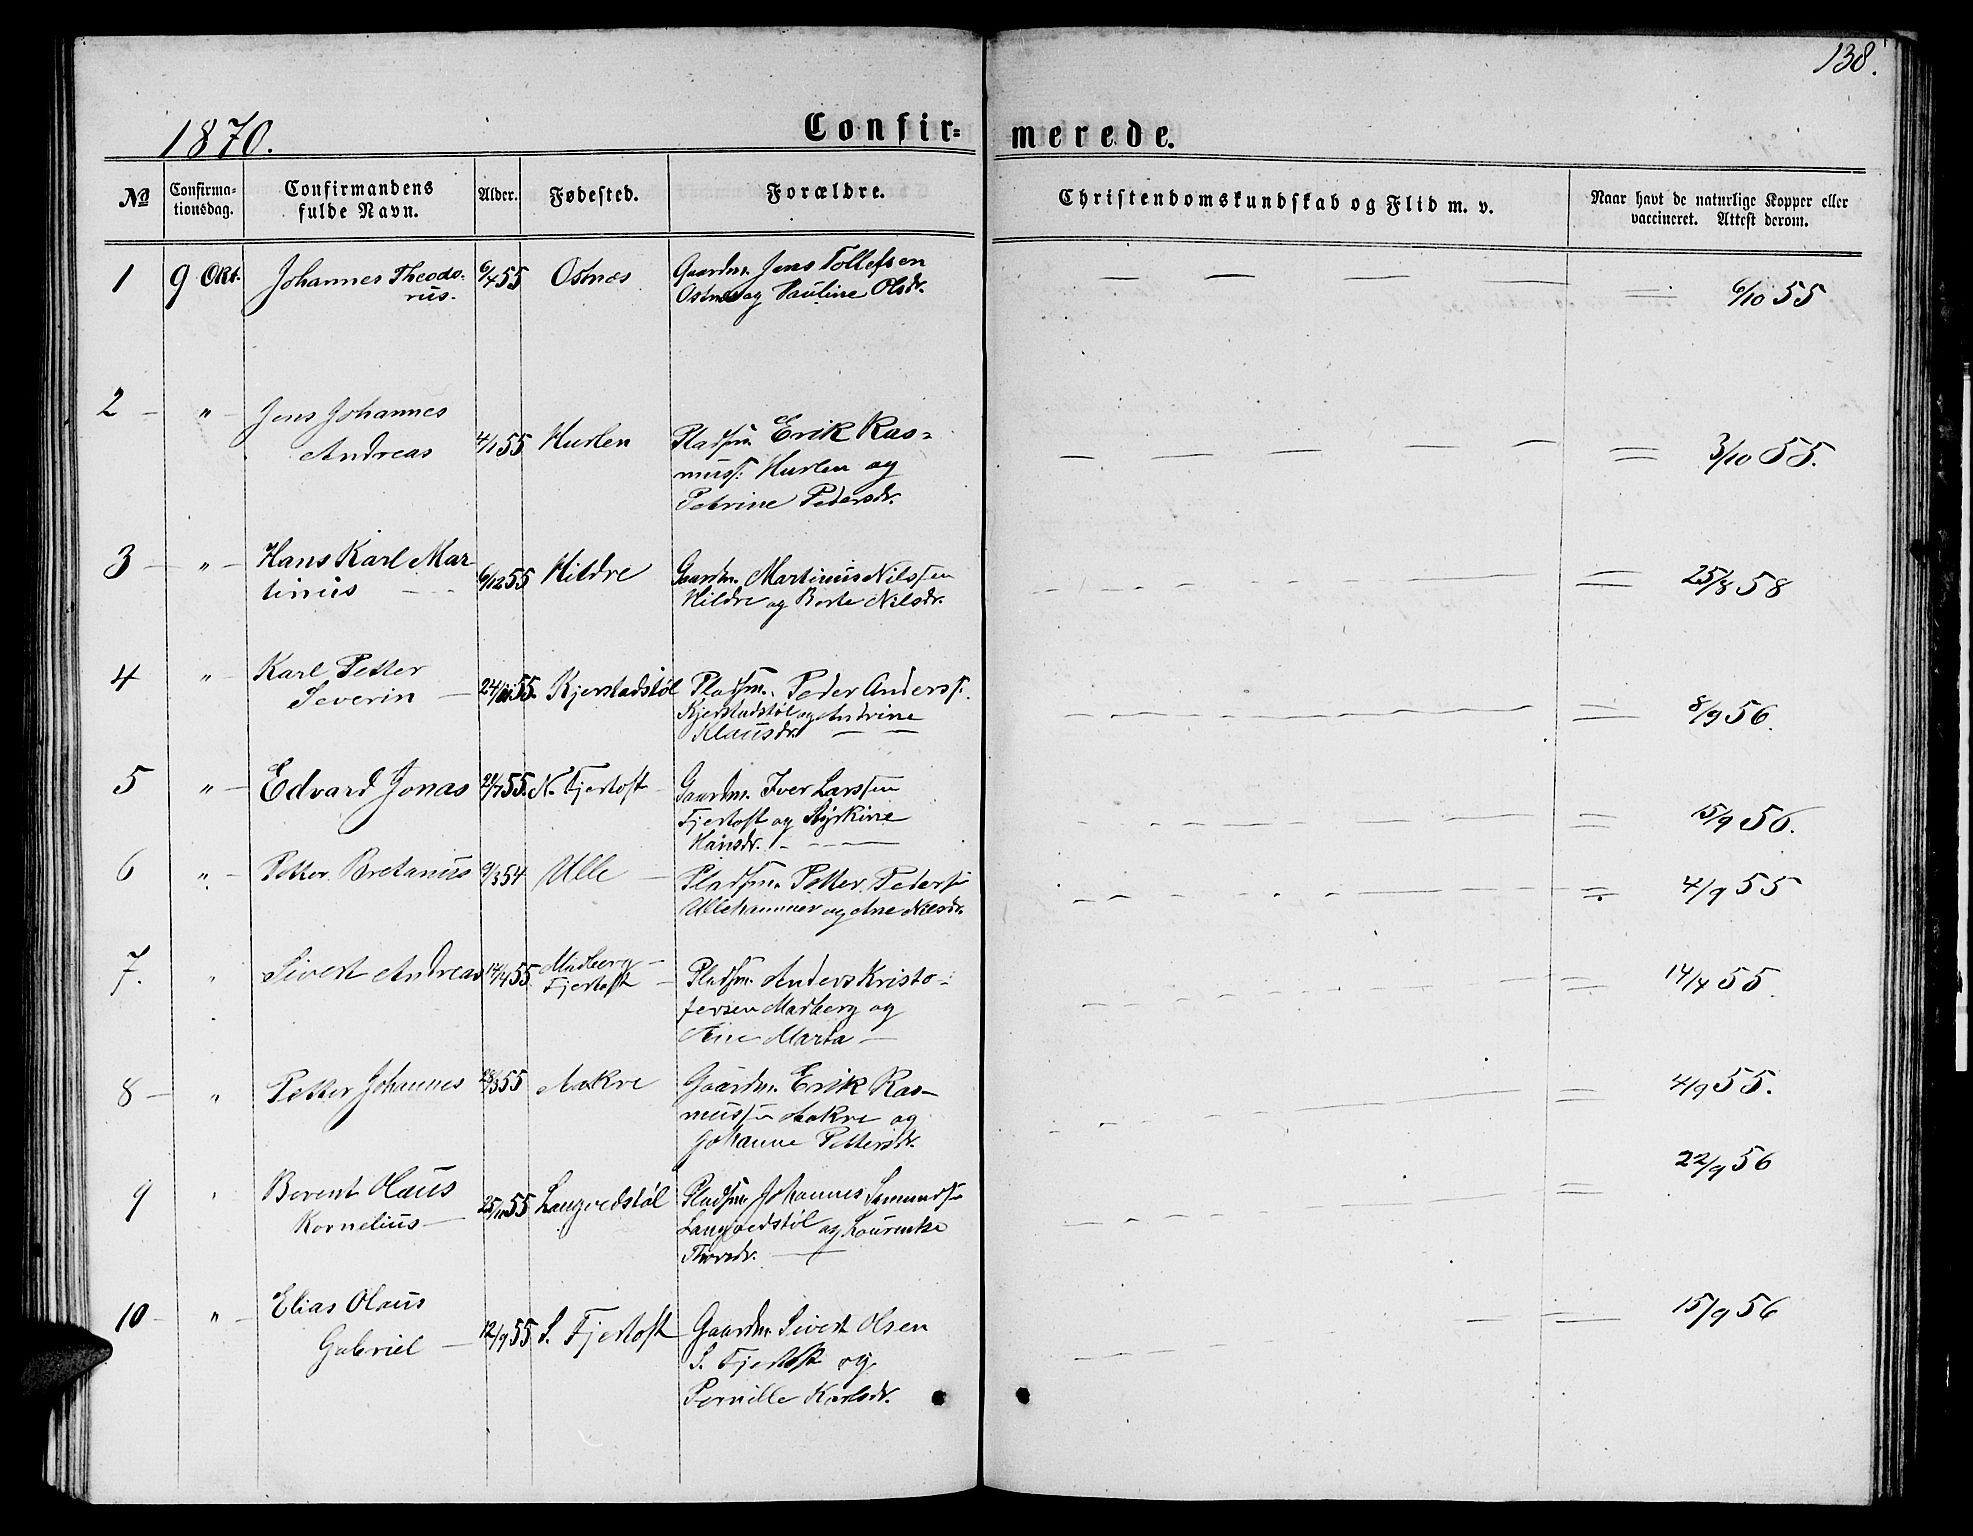 138.
1870.
Confir=
merede.
No
Confirma-
tionsdag.
Confirmandens
fulde Navn.
Alder.
Fødested.
Forældre.
Christendomskundskab og Flid m. v.
Naar havt de naturlige Kopper eller
vaccineret. Attest derom.
1 9 Okt. Johannes Theodo- 6/4 55 Ostnes Gaardm. Jens Tollefsen
rus. Ostnes og Pauline Olsdr. 6/10 55
2 " Jens Johannes
Andreas 4/1 55 Hurlen Pladsm. Erik Ras=
muss. Hurlen og 3/10 55.
Petrine Pedersdr.
3 " Hans Karl Mar-
tinius 6/12 55 Hildre Gaardm. Martinus Nilssen
Hildre og Berte Nilsdr. 25/8 58
4 " Karl Petter
Severin 55. Kjerstadstøl Pladsm. Peder Anderss.
Kjerstadstøl og Andrine
Klausdr. 8/9 56.
5 " Edvard Jonas 55. N. Fjertoft Gaardm. Iver Larssen
Fjertoft og Styrkine
Hansdr. 15/9 56.
6 " Petter Bretanus 9/3 54 Ulle Pladsm. Petter Peders
Ullehammer og Ane Nilsdr. 4/9 55
7. " Sivert Andreas 14/4 55 Madberg
Fjertoft Pladsm. Anders Kristo-
fersen Madberg og
Ane Marta 14/4 55.
8 " Petter Johannes 55 Aakre Gaardm. Erik Ras-
mussen Aakre og
Johanne Pettersdr. 4/9 55.
9 " Berent Olaus
Kornelius 25/10 55 Langvedstøl Pladsm. Johannes
Langvedstøl og Laurentse
22/9 56
10 " Elias Olaus
Gabriel 12/9 55 S. Fjertoft Gaardm. Sivert Olsen
S. Fjertoft og
Pernille Karlsdr. 15/9 56